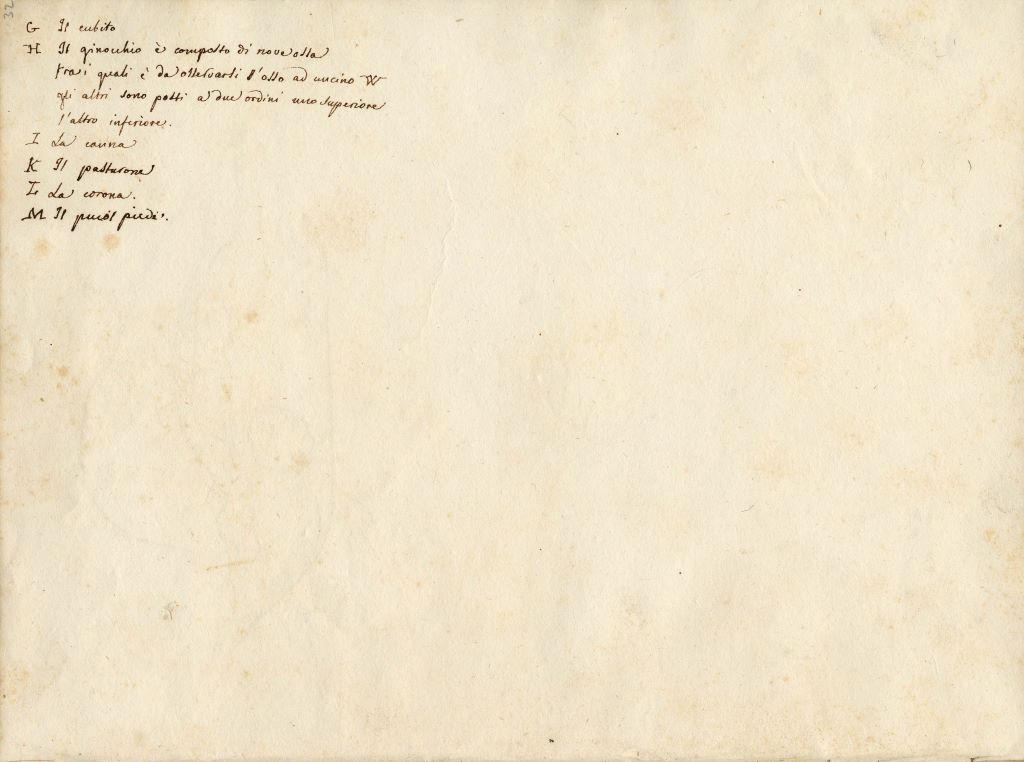 32
G Il cubito
H Il ginocchio è composto di nove ossa
fra i quali è da osservarsi l'osso ad uncino W
gli altri sono posti a due ordini uno superiore
l'altro inferiore.
I La canna
K Il pasturone
L La corona.
M Il piede.